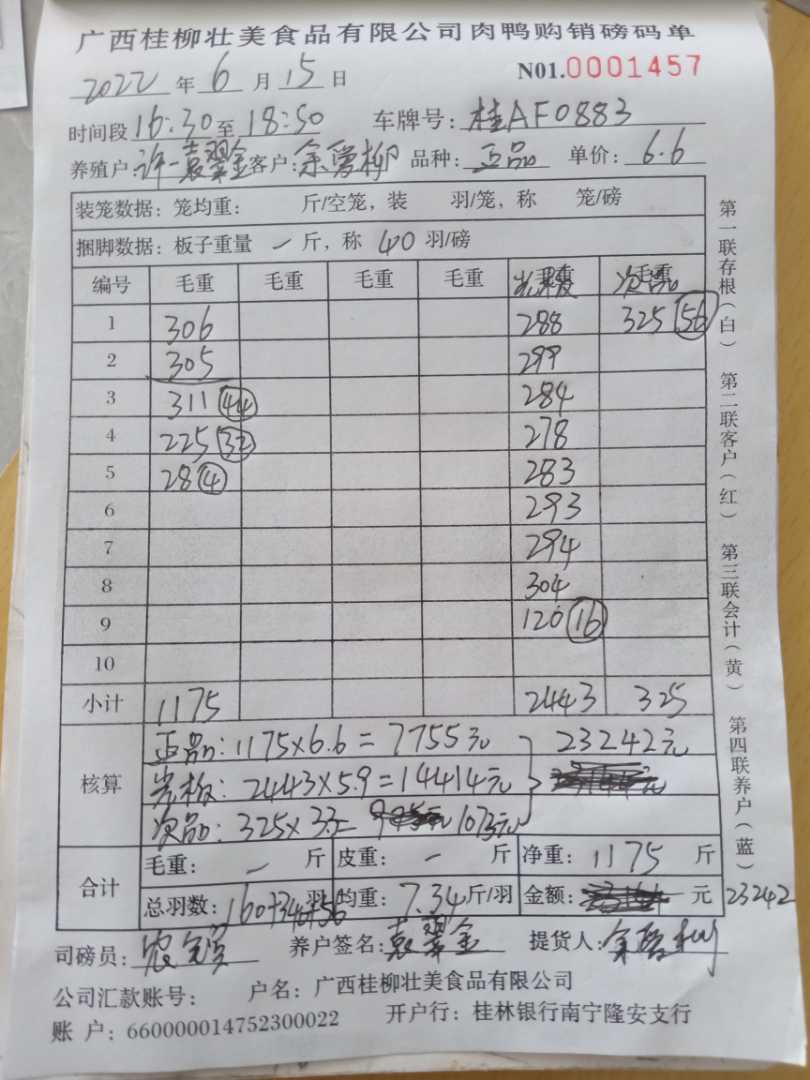 广西桂柳壮美食品有限公司肉鸭购销磅码单
2022年6月15日 N01.0001457
时间段16:30至18:50 车牌号:桂AF0883
养殖户:许一袁翠金 客户:余爱柳 品种:正品 单价:6.6
装笼数据:笼均重: 斤/空笼,装 羽/笼,称 笼/磅
捆脚数据:板子重量 一 斤,称 40 羽/磅
编号 毛重 毛重 毛重 毛重 次品
1 306 288 325 56
2 305 299
3 311 44 284
4 225 32 278
5 28 4 283
6 293
7 294
8 304
9 120 16
10
小计 1175 2443 325
核算 正品:1175×6.6=7755元 23242元
光板:2443×5.9=14414元
次品:325×3.3= 1073元
合计 毛重: 一 斤 皮重: 一 斤 净重:1175 斤
总羽数:160+340+56 羽 均重:7.34斤/羽 金额: 元 23242
司磅员: 养户签名:袁翠金 提货人:余爱柳
公司汇款账号: 户名:广西桂柳壮美食品有限公司
账 户:660000014752300022 开户行:桂林银行南宁隆安支行
第一联存根(白) 第二联客户(红) 第三联会计(黄) 第四联养户(蓝)